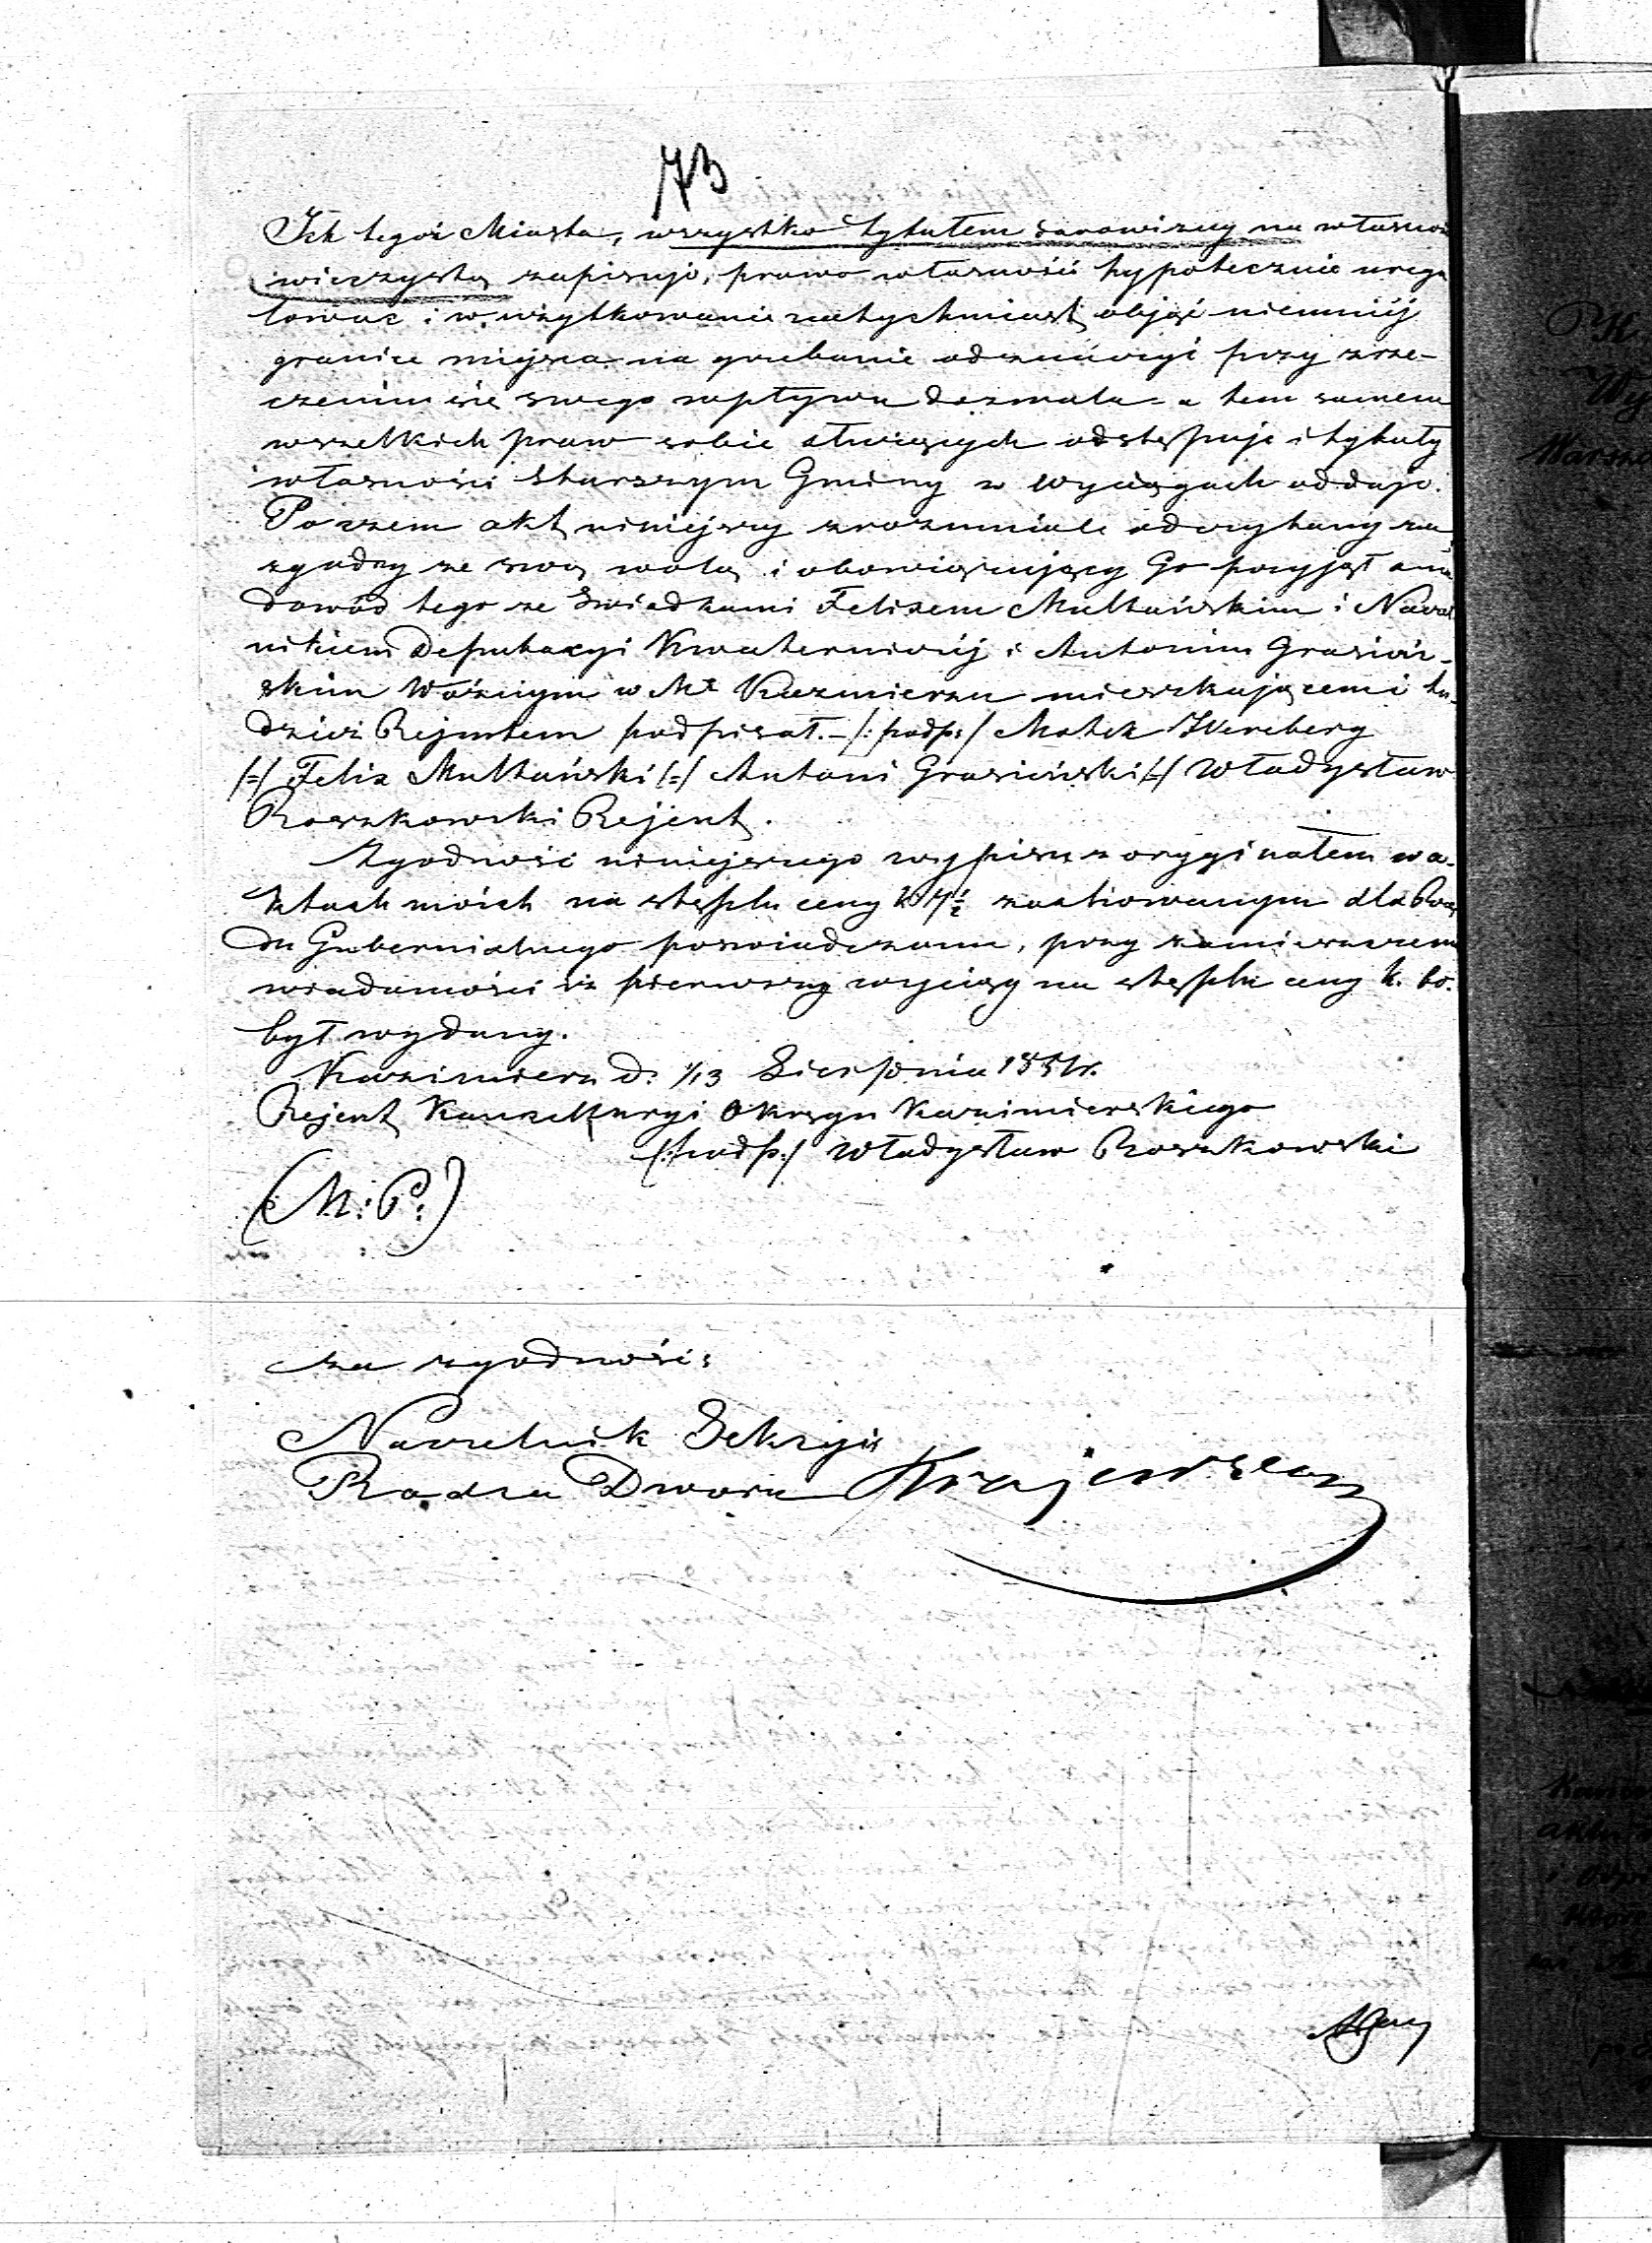 73
Ich tegoż Miasta, wszystko tytułem darowizny na własność
wieczystą zapisuje, prawo własności hypotecznie uregu
lować i w użytkowanie natychmiast objąć niemniéj
granice miejsca na grzebanie odznaczyć przy zrze-
czeniu się swego wpływu dozwala - a tem samem
wszelkich praw sobie służących odstępuje i tytuły
własności Starszym Gminy w wyciągach oddaje.
Poczem akt niniejszy zrozumiale odczytany za
zgodny ze swą wolą i obowiązujący Go przyjął a na
dowód tego ze Świadkami Felixem Multańskim i Naczel
nikiem Deputacyi Kwaterniczéj i Antonim Grasiń-
skim Woźnym w Mie Kazmierzu mieszkającemi tu
dzież Rejentem podpisał. - /: podp: / Motek Hercberg
/=/ Felix Multański /=/ Antoni Grasiński /=/ Władysław
Roszkowski Rejent.
Zgodność niniejszego wypisu z oryginałem w a-
ktach moich na stęplu ceny k 7½ dla Rzą
du Gubernialnego poświadczam, przy zamieszczeniu
wiadomości iż pierwszy wyciąg na stęplu ceny k. 60.
był wydany.
Kazimierz d. 1/13 Sierpnia 1851r.
Rejent Kancellaryi Okręgu Kazimierskiego
/:podp:/ Władysław Roszkowski
(:M:P:)
za zgodność:
Naczelnik Sekcyi
Radca Dworu Krajewski